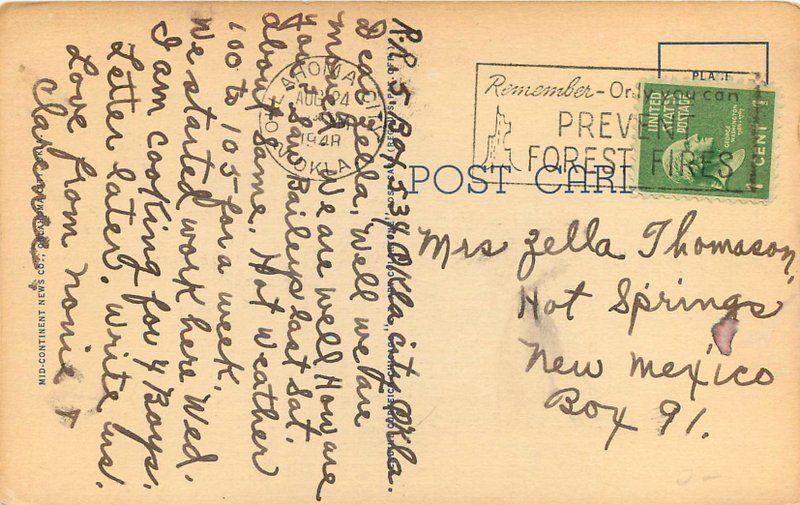 R.R. 5 Box 534 Okla. City, Okla.
Dear Zella, Well we are
We are well How are
you. Saw Baileys last Sat.
about same. Hot weather
100 to 105 for a week.
We started work here Wed.
I am cooking for 4 Boys.
Letter later. Write us.
Love from Nonie &
Clarence
MID-CONTINENT NEWS CO., OKLAHOMA
OKLAHOMA CITY
AUG 24
1948
OKLA.
Remember-Only you can
PREVENT
FOREST FIRES
PLACE
UNITED
STATES
POSTAGE
GEORGE
WASHINGTON
1 CENT 1
POST CARD
Mrs Zella Thomason,
Hot Springs
New Mexico
Box 91.